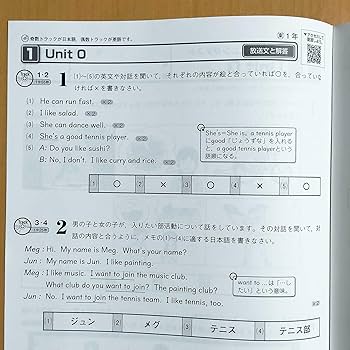 奇数トラックが日本語、偶数トラックが英語です。
1年
1 Unit 0
放送文と解答
1・2
1 (1)~(5)の英文や対話を聞いて、それぞれの内容が絵と合っていれば○を、合っていな
ければ×を書きなさい。
(1) He can run fast. ×2
(2) I like salad. ×2
(3) She can dance well. ×2
(4) She's a good tennis player. ×2
(5) A: Do you like sushi?
B: No, I don't. I like curry and rice. ×2
She's=She is。a tennis player
にgood「じょうずな」を入れる
と、a good tennis playerという
語順になる。
1 ○ 2 × 3 ○ 4 × 5 ○
3・4
2 男の子と女の子が、入りたい部活動について話をしています。その対話を聞いて、対
話の内容と合うように、メモの(1)~(4)に適する日本語を書きなさい。
Meg : Hi. My name is Meg. What's your name?
Jun : My name is Jun. I like painting.
Meg : I like music. I want to join the music club.
What club do you want to join? The painting club?
Jun : No. I want to join the tennis team. I like tennis, too. ×2
want to ...は「…し
たい」という意味。
1 ジュン 2 メグ 3 テニス 4 テニス部